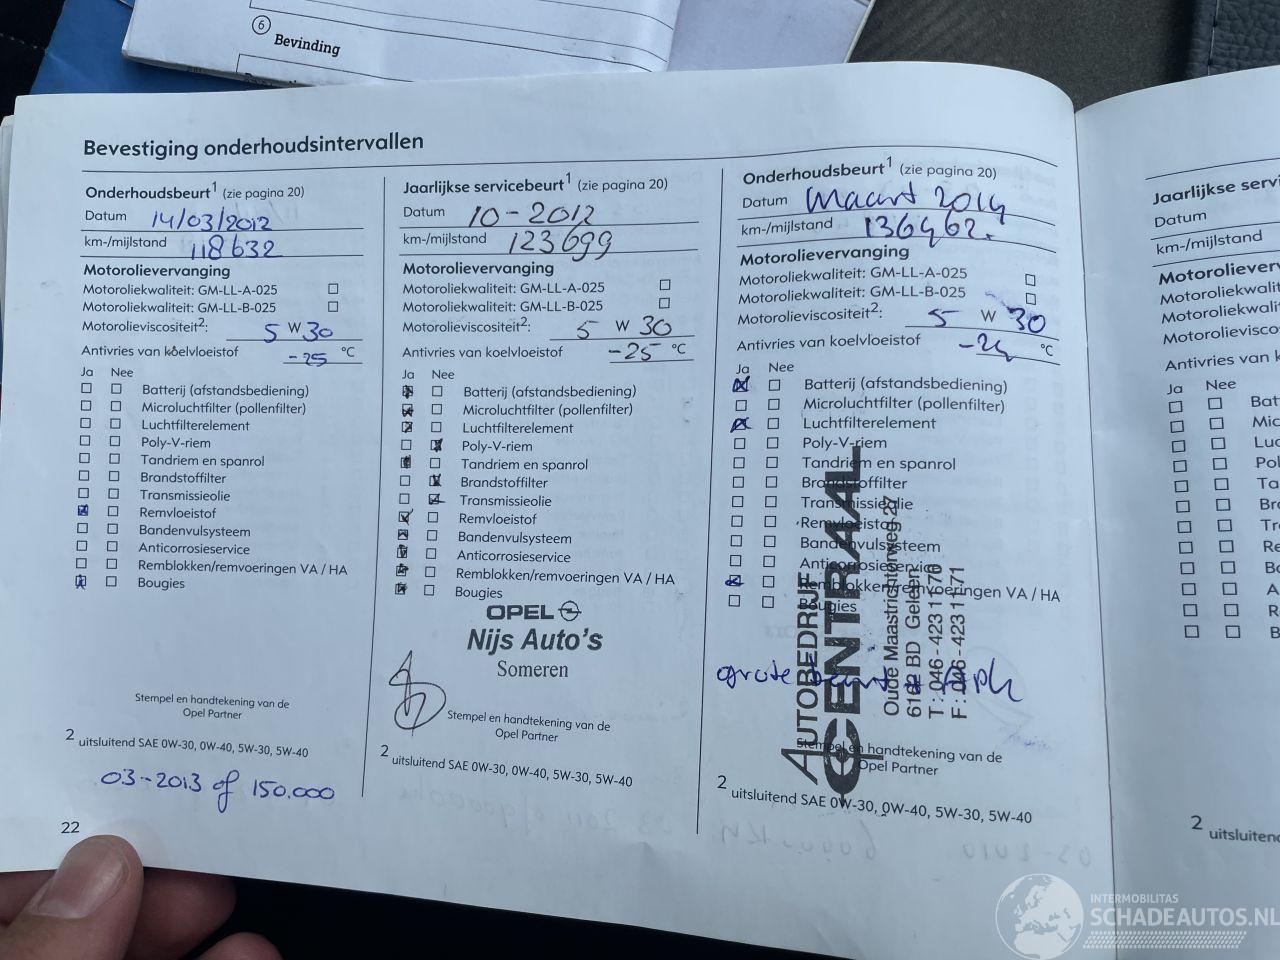 6 Bevinding
Bevestiging onderhoudsintervallen
Onderhoudsbeurt1 (zie pagina 20)
Datum 14/03/2012
km-/mijlstand 118632
Motorolievervanging
Motoroliekwaliteit: GM-LL-A-025
Motoroliekwaliteit: GM-LL-B-025
Motorolieviscositeit2: 5 W 30
Antivries van koelvloeistof -25 °C
Ja Nee
Batterij (afstandsbediening)
Microluchtfilter (pollenfilter)
Luchtfilterelement
Poly-V-riem
Tandriem en spanrol
Brandstoffilter
Transmissieolie
Remvloeistof
Bandenvulsysteem
Anticorrosieservice
Remblokken/remvoeringen VA / HA
Bougies
Stempel en handtekening van de
Opel Partner
2 uitsluitend SAE 0W-30, 0W-40, 5W-30, 5W-40
03-2013 of 150.000
22
Jaarlijkse servicebeurt1 (zie pagina 20)
Datum 10-2012
km-/mijlstand 123699
Motorolievervanging
Motoroliekwaliteit: GM-LL-A-025
Motoroliekwaliteit: GM-LL-B-025
Motorolieviscositeit2: 5 W 30
Antivries van koelvloeistof -25 °C
Ja Nee
Batterij (afstandsbediening)
Microluchtfilter (pollenfilter)
Luchtfilterelement
Poly-V-riem
Tandriem en spanrol
Brandstoffilter
Transmissieolie
Remvloeistof
Bandenvulsysteem
Anticorrosieservice
Remblokken/remvoeringen VA / HA
Bougies
OPEL
Nijs Auto's
Someren
Stempel en handtekening van de
Opel Partner
2 uitsluitend SAE 0W-30, 0W-40, 5W-30, 5W-40
Onderhoudsbeurt1 (zie pagina 20)
Datum Maart 2014
km-/mijlstand 136462.
Motorolievervanging
Motoroliekwaliteit: GM-LL-A-025
Motoroliekwaliteit: GM-LL-B-025
Motorolieviscositeit2: 5 W 30
Antivries van koelvloeistof -24 °C
Ja Nee
Batterij (afstandsbediening)
Microluchtfilter (pollenfilter)
Luchtfilterelement
Poly-V-riem
Tandriem en spanrol
Brandstoffilter
Transmissieolie
Remvloeistof
Bandenvulsysteem
Anticorrosieservice
Remblokken/remvoeringen VA / HA
Bougies
grote beurt + APK
AUTOBEDRIJF
CENTRAAL
Oude Maastrichterweg 27
6162 BD Geleen
T : 046 - 423 11 70
F : 046 - 423 11 71
Stempel en handtekening van de
Opel Partner
2 uitsluitend SAE 0W-30, 0W-40, 5W-30, 5W-40
Jaarlijkse servi
Datum
km-/mijlstand
Motorolieverv
Motoroliekwalit
Motoroliekwalit
Motorolievisco
Antivries van k
Ja Nee
Batt
Mic
Luc
Pol
Ta
Br
Tr
Re
Ba
A
R
B
2 uitsluitend
INTERMOBILITAS
SCHADEAUTOS.NL